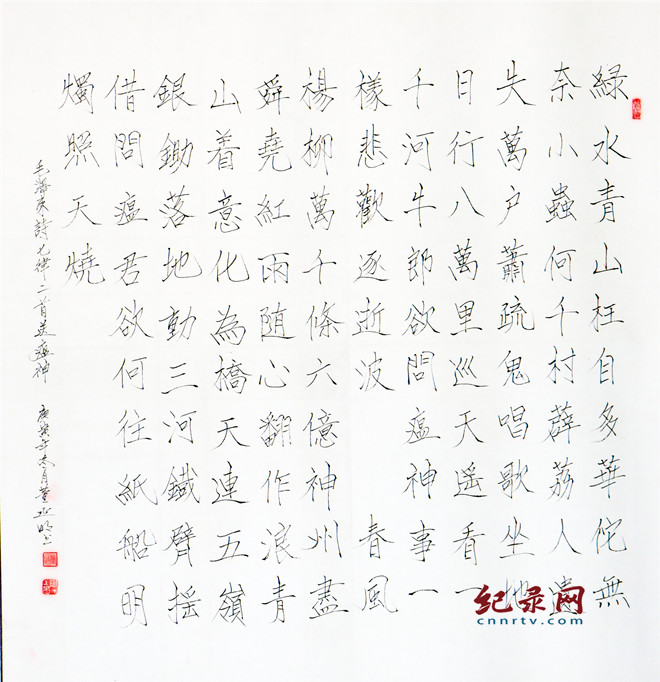 緑水青山枉自多華佗無
奈小蟲何千村薜荔人遺
失萬户蕭疏鬼唱歌坐地
日行八萬里巡天遥看一
千河牛郎欲問瘟神事一
樣悲歡逐逝波 春風
楊柳萬千條六億神州盡
舜堯紅雨随心翻作浪青
山着意化為橋天連五嶺
銀鋤落地動三河鐵臂摇
借問瘟君欲何往紙船明
燭照天燒
毛澤東詩七律二首送瘟神 庚寅年冬月董
纪录网
cnnrtv.com